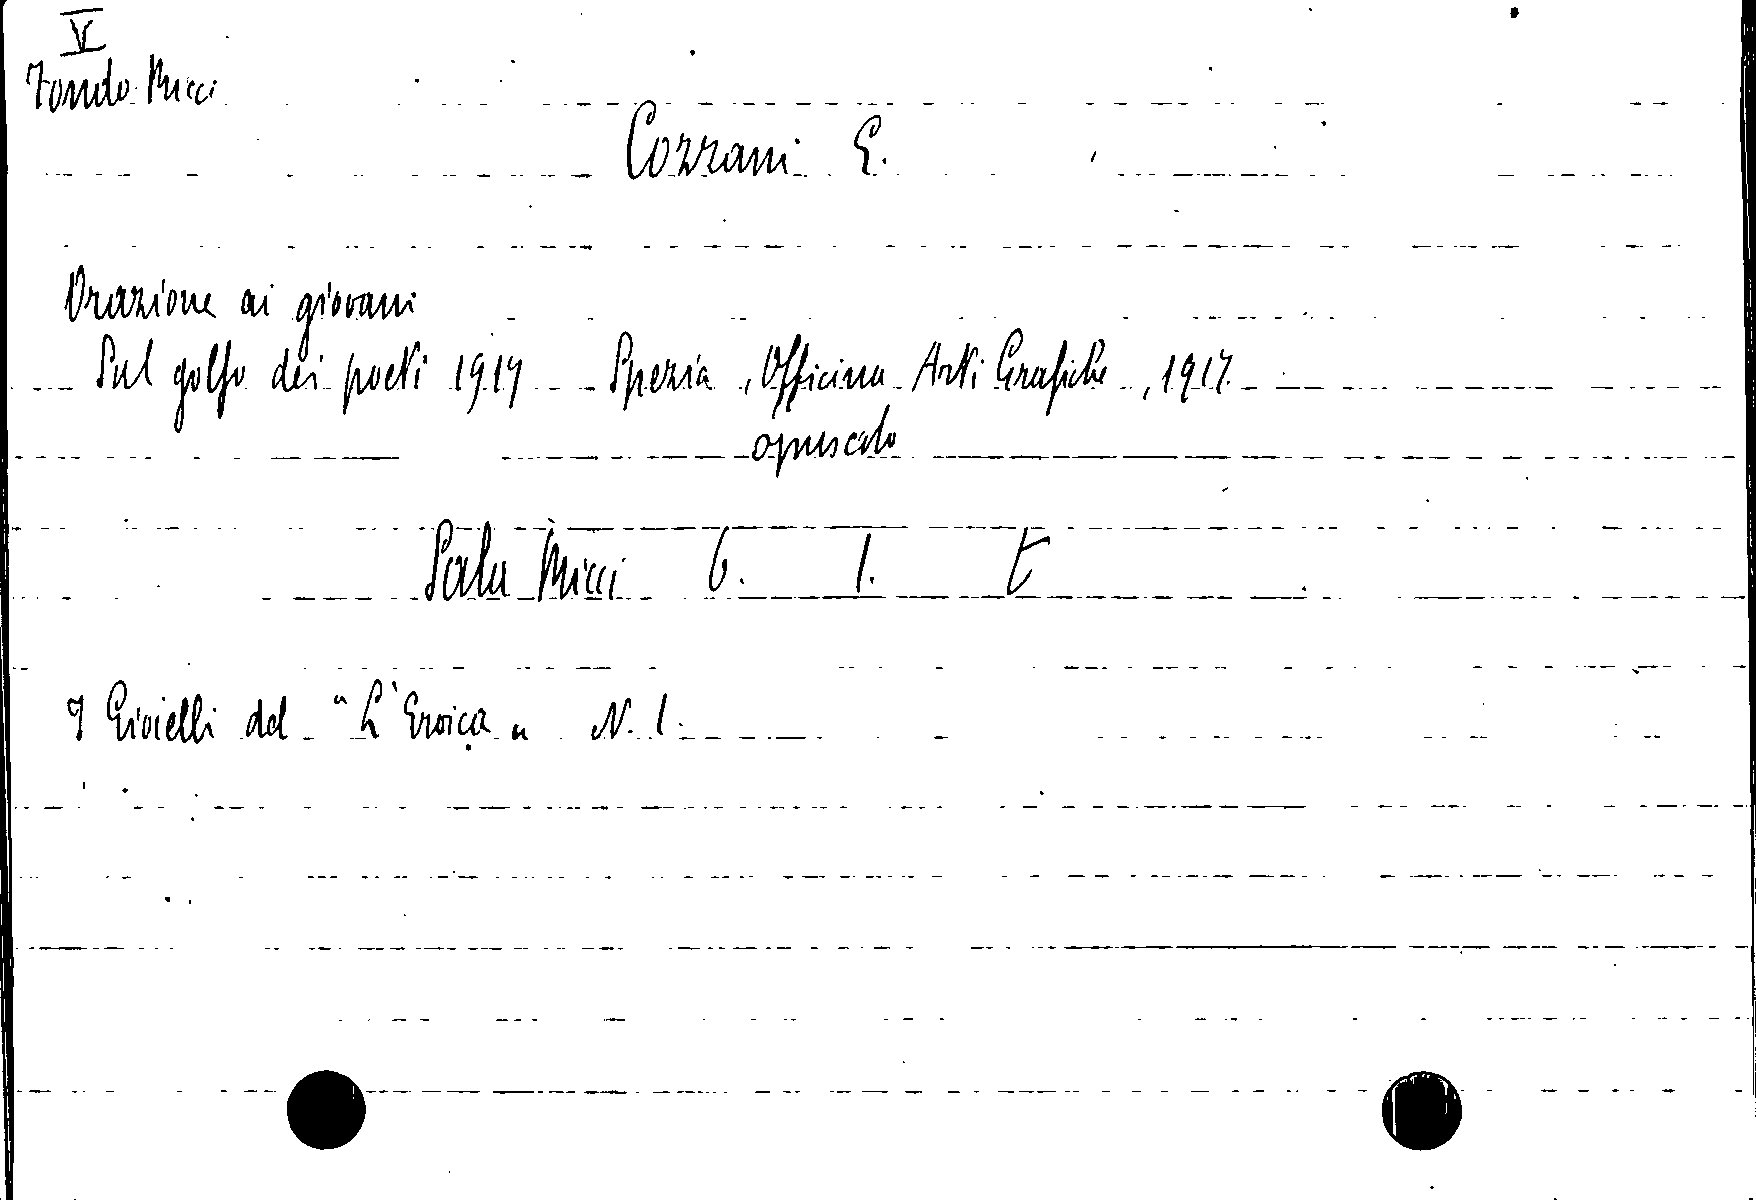 V
Fondo Micci
Cozzani E.
Orazione ai giovani
Sul golfo dei poeti 1917 Spezia, Officina Arti Grafiche, 1917
opuscolo
Sala Micci 6. 1. E
I Gioielli del "L'Eroica" N. 1.